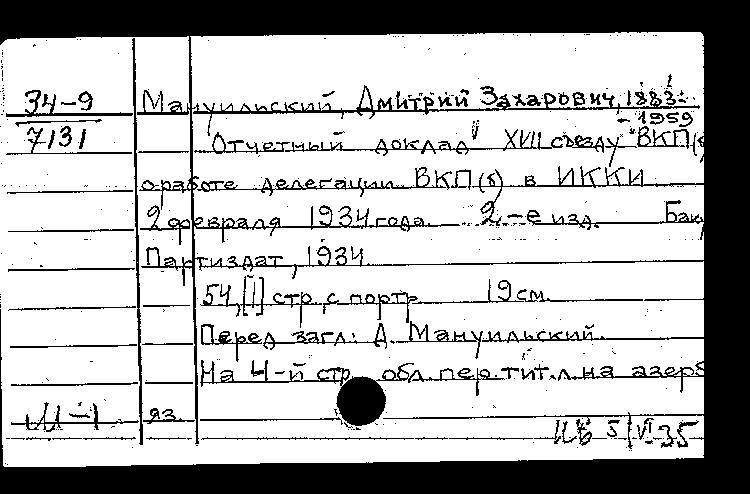 34-9 Мануильский, Дмитрий Захарович, 1883-
-1959
7131 Отчетный доклад XVII съезду ВКП(б
о работе делегации ВКП(б) в ИККИ
2 февраля 1934 года. 2-е изд. Баку
Партиздат, 1934
54, [1] стр. с портр. 19 см.
Перед загл.: Д. Мануильский.
На 4-й стр. обл. пер. тит. л. на азерб
М-1 яз.
5/VI 35